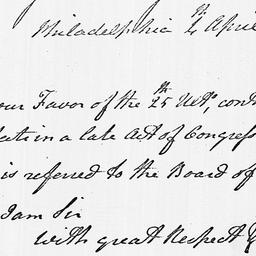 Philadelphia 4th April
our Favor of the 25th Ulto, cont
late in a late Act of Congress
is referred to the Board of
I am Sir
with great Respect